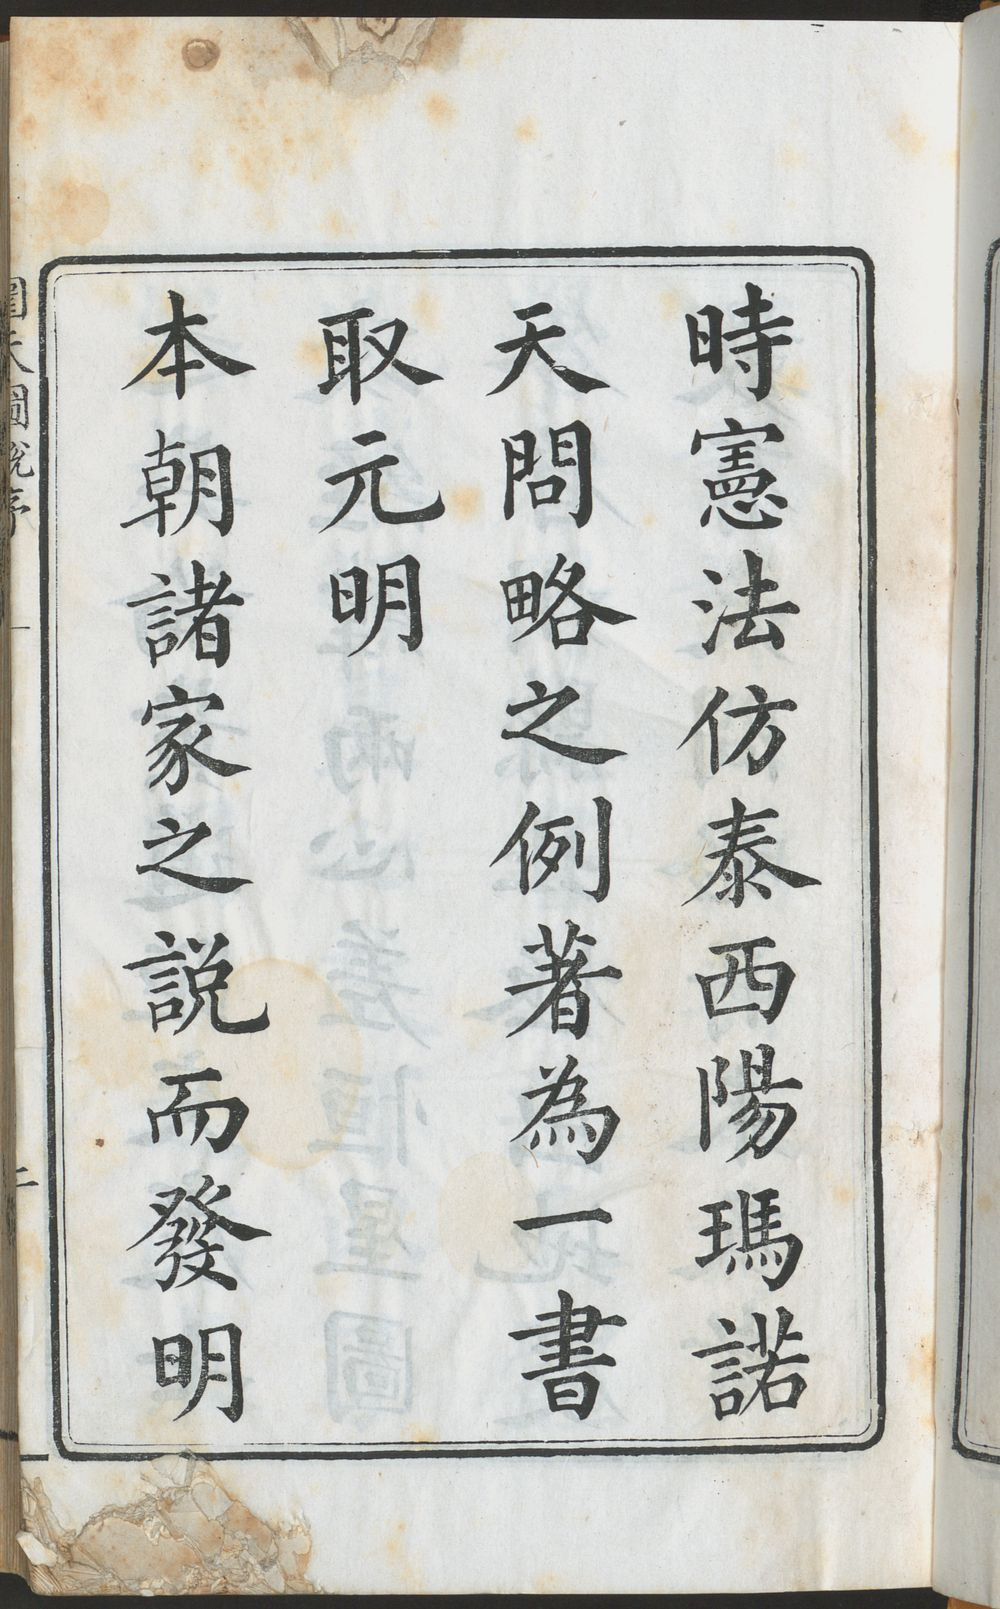 時憲法仿泰西陽瑪諾
天問略之例著為一書
取元明
本朝諸家之説而發明
圜天圖説序
二